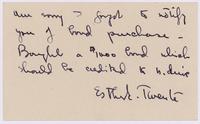 am sorry I forgot to notify
you of bond purchase -
Bought a $1000 bond which
should be credited to
Esther Twente